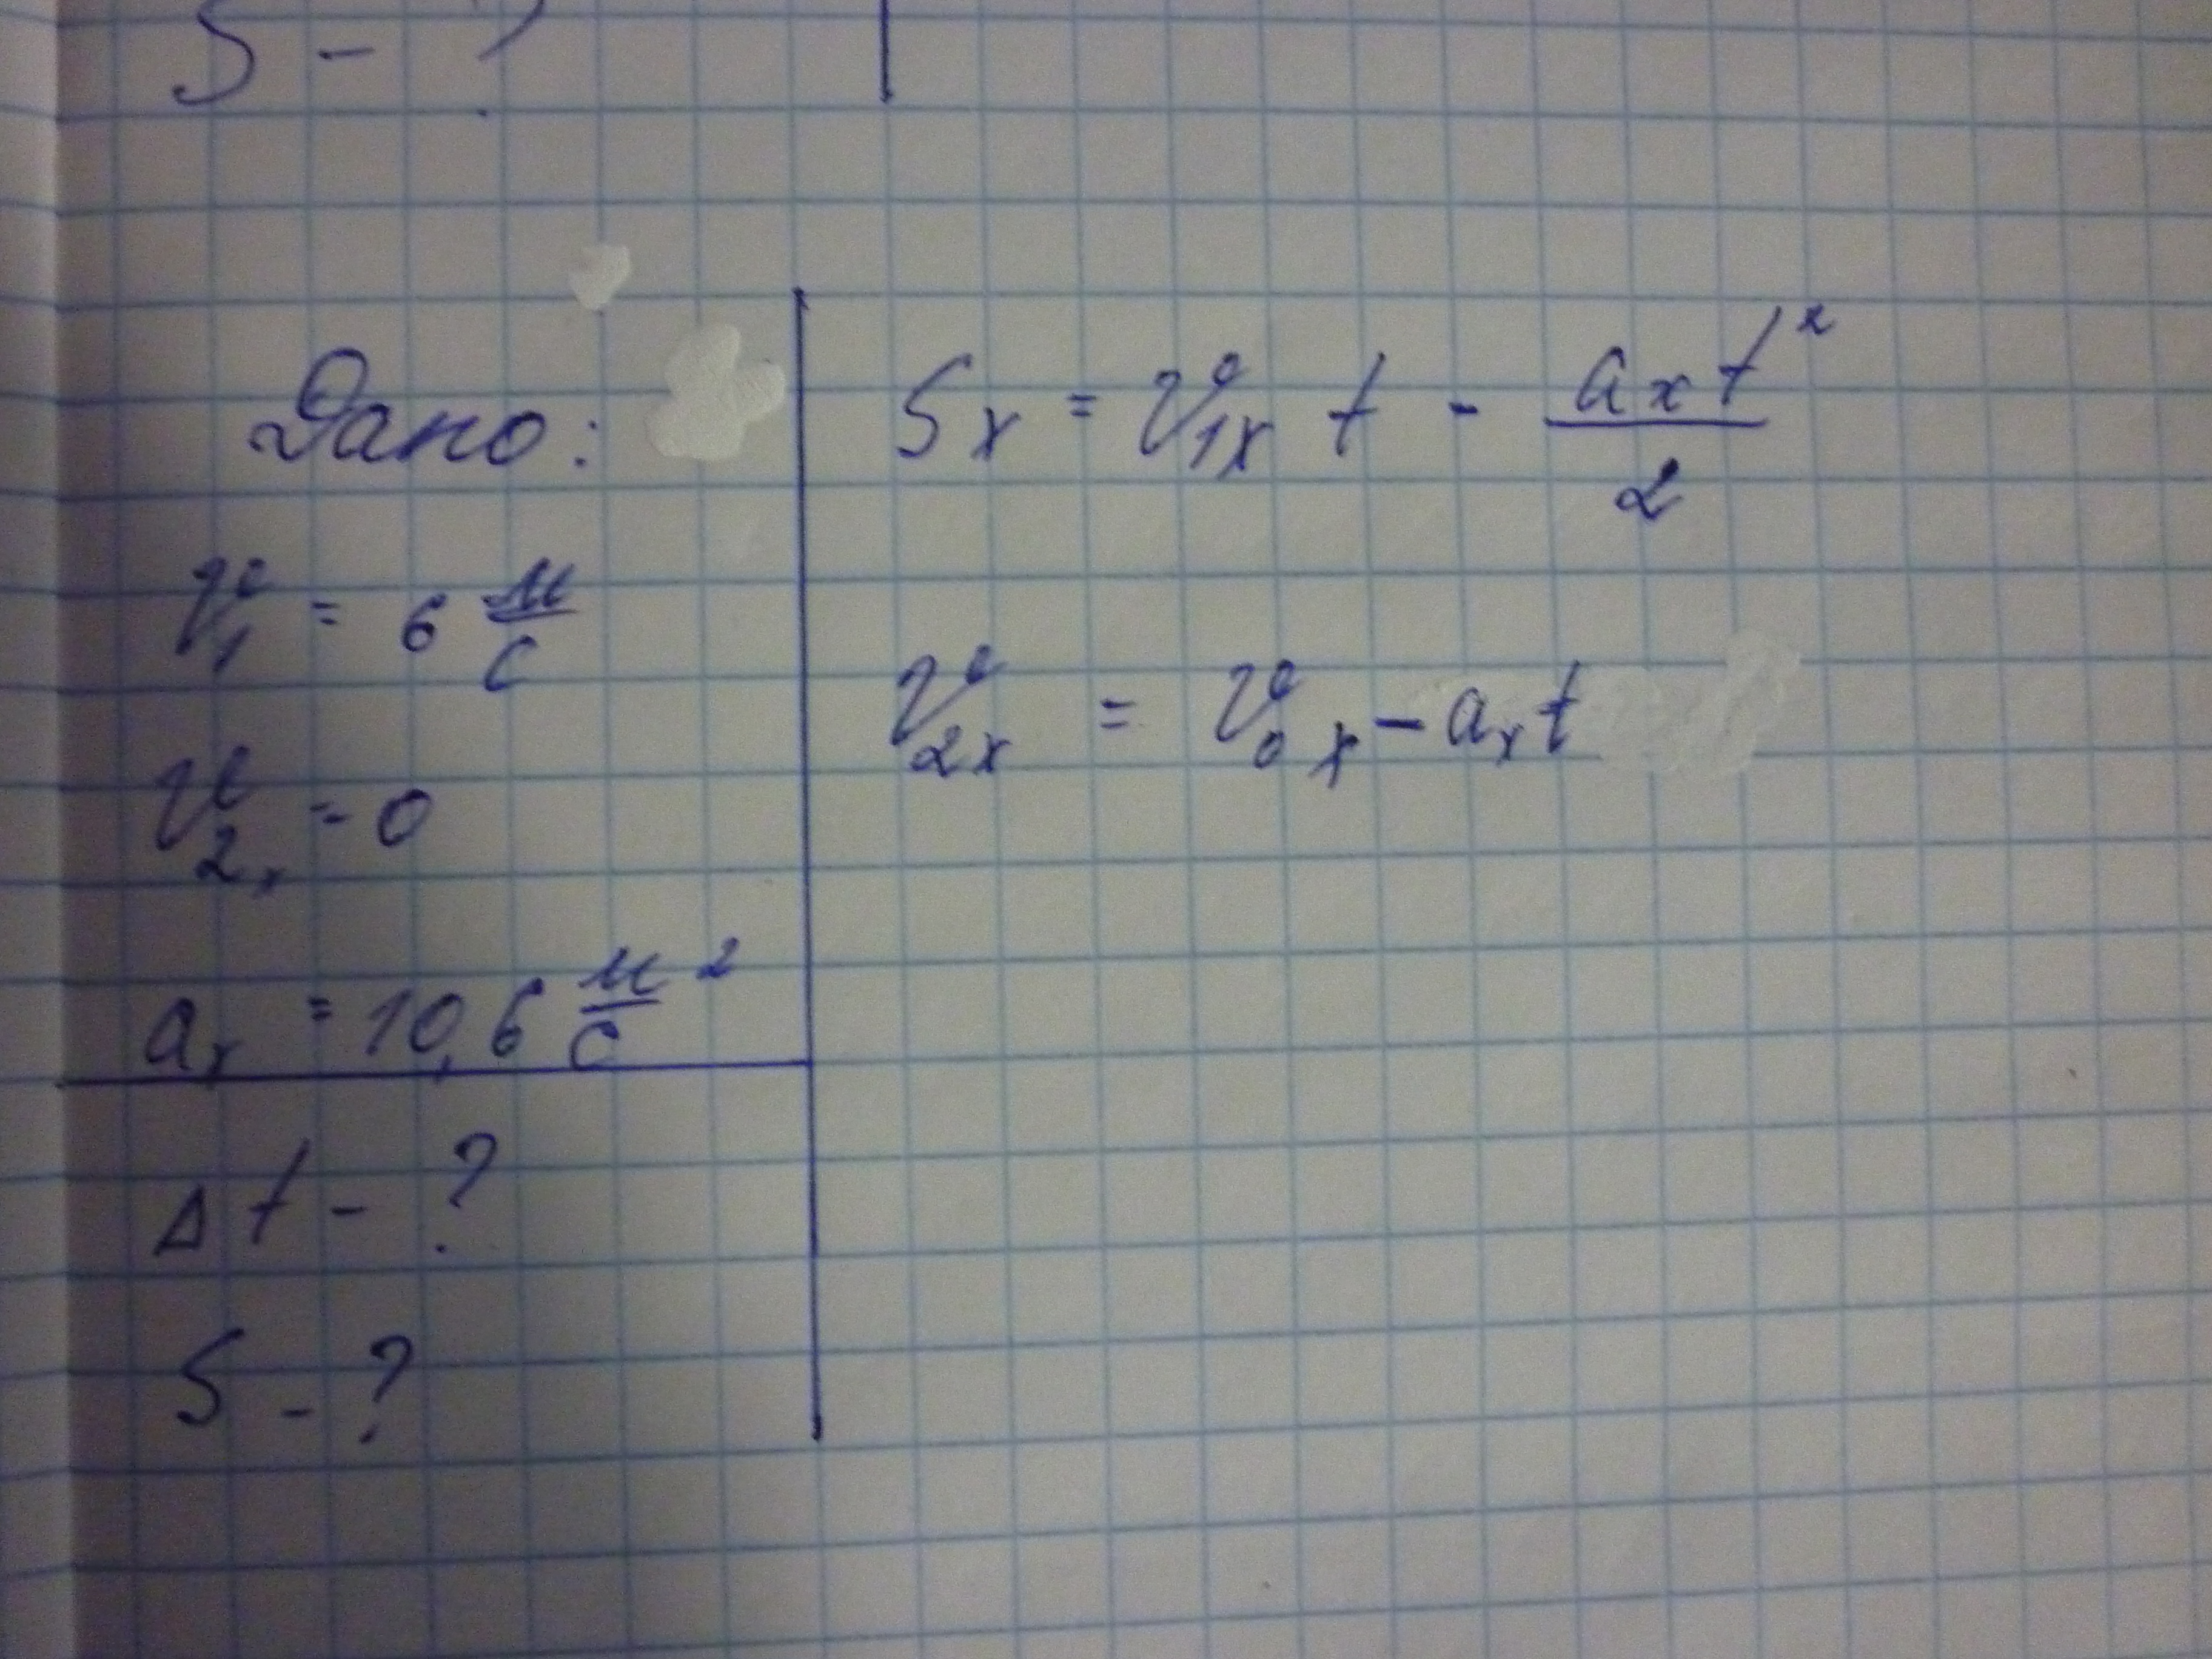 S - ?
Дано:
V₁ = 6 м/с
V₂ₓ = 0
aₓ = 10,6 м/с ²
Δt - ?
S - ?
Sₓ = V₁ₓ t - aₓt²/2
V₂ₓ = V₀ₓ - aₓt